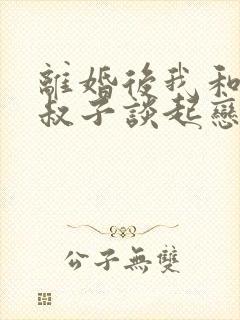 離婚後我和
叔子談起戀
公子無雙